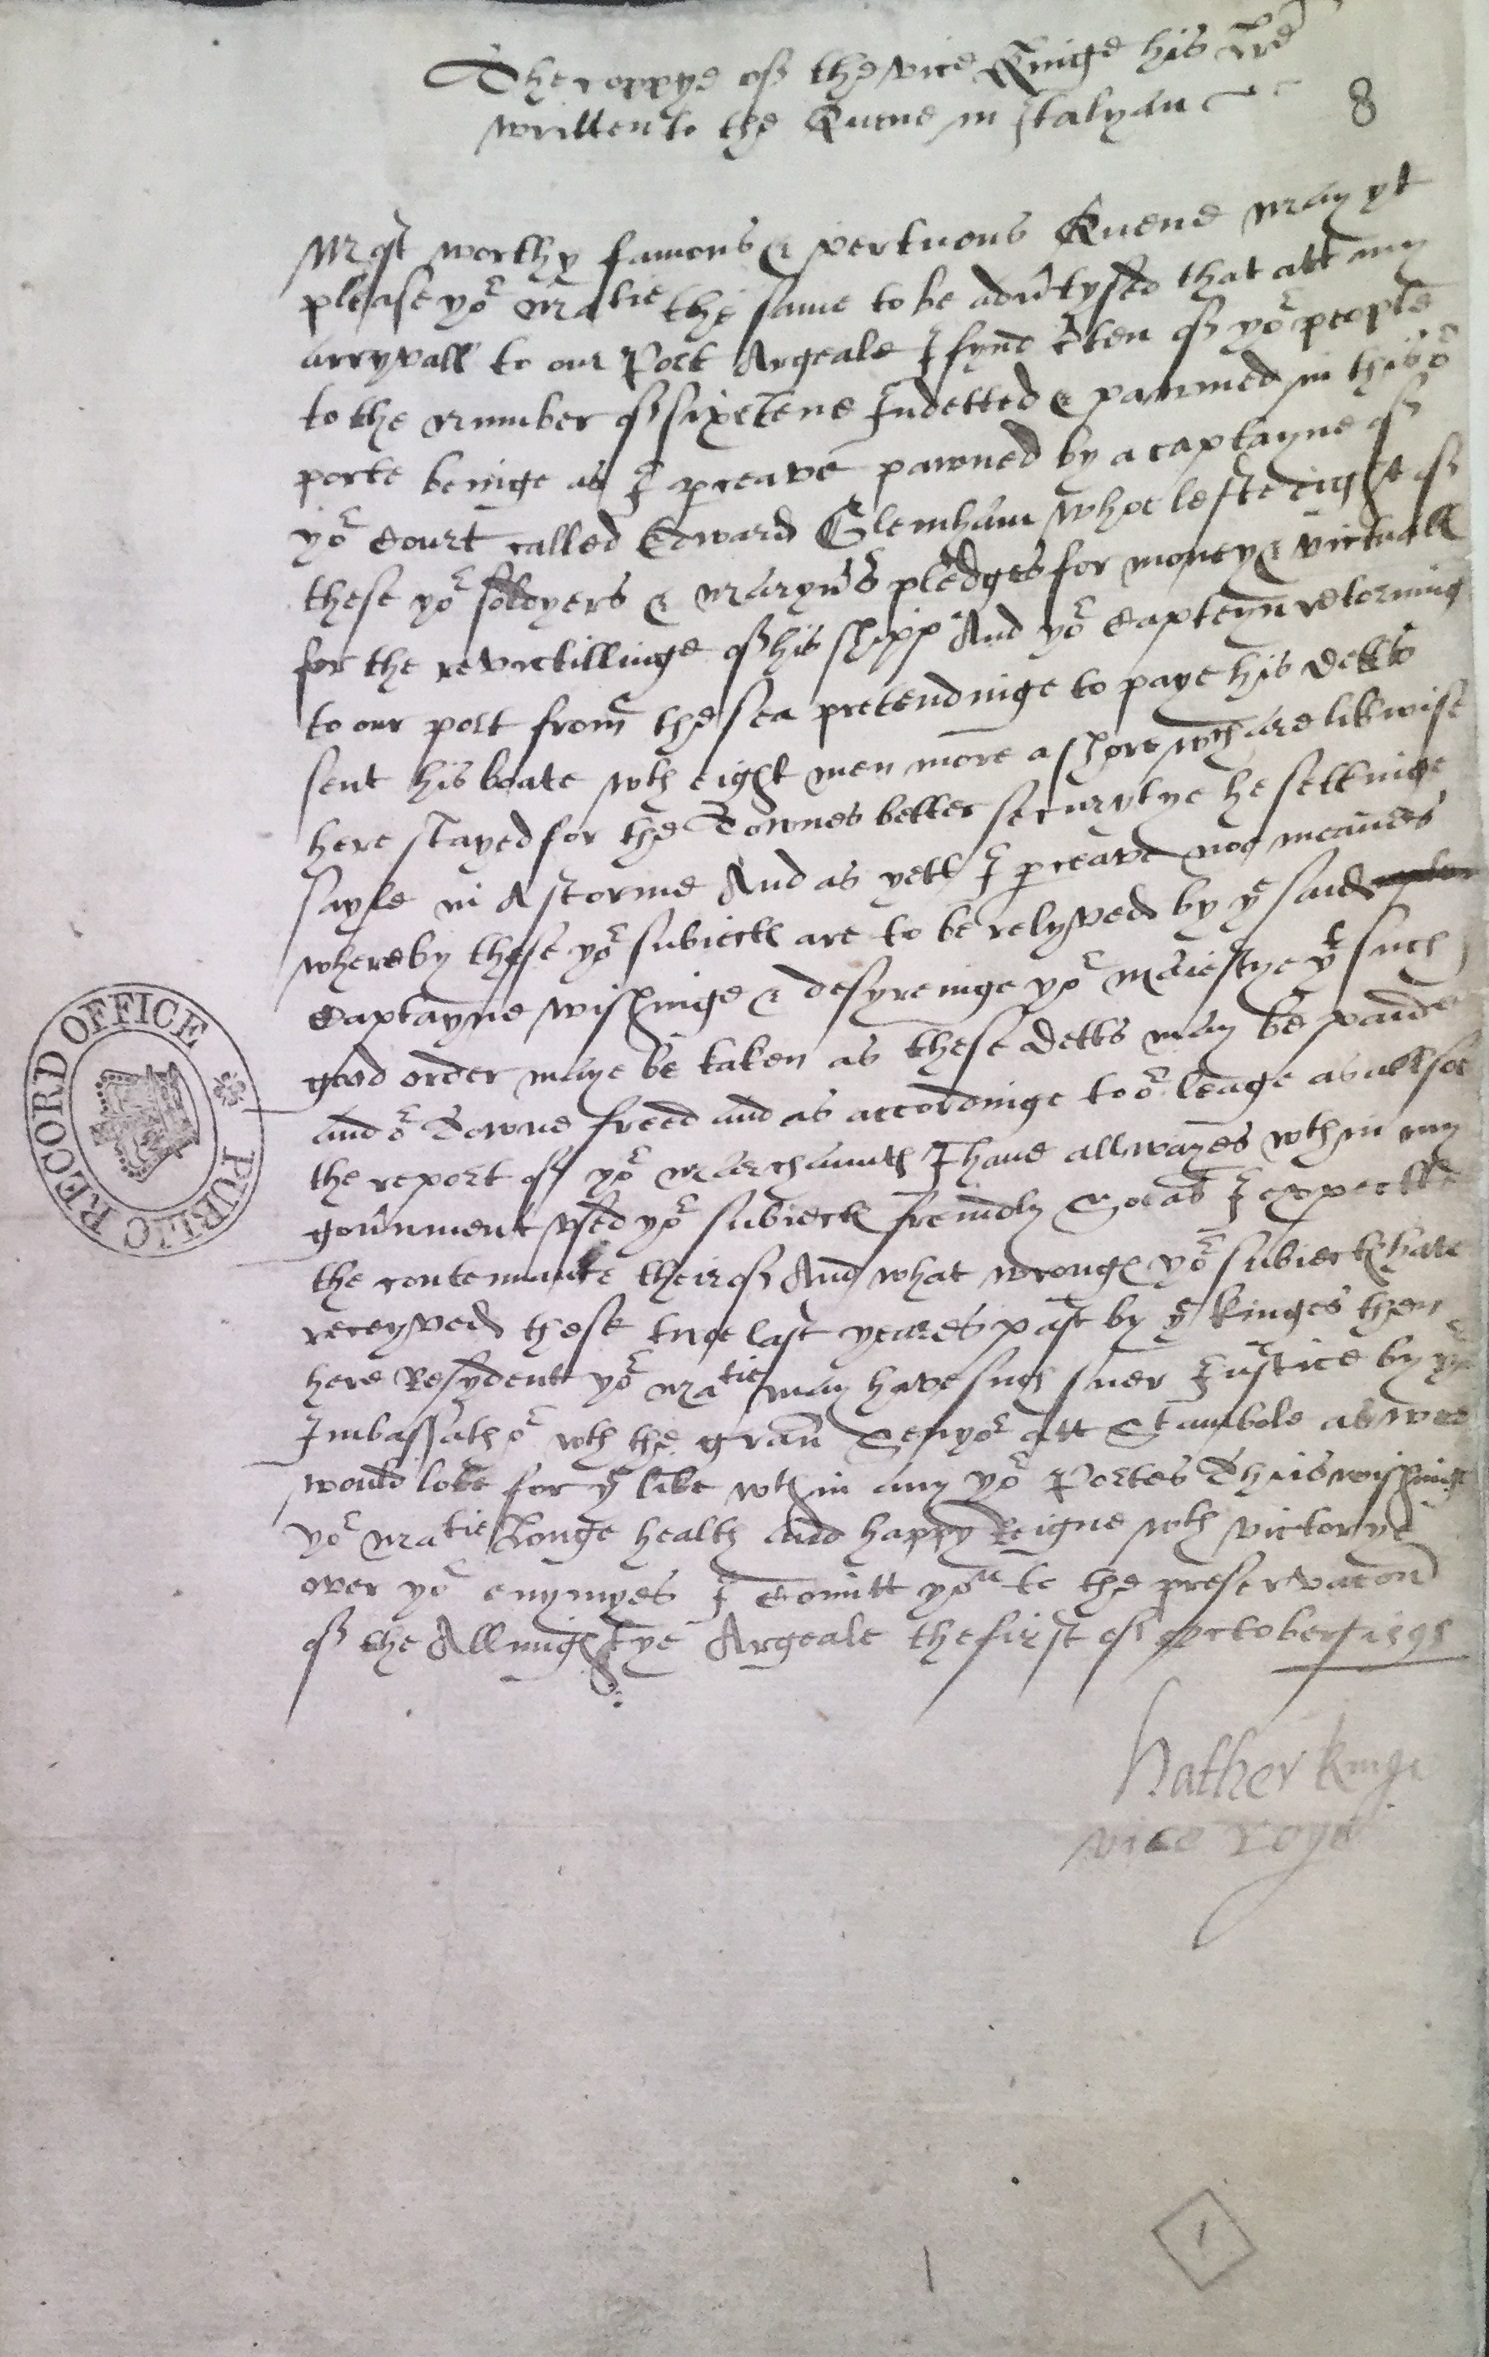 The coppye of the vice Kinge his lre
written to the Quene in Italyan
8
Most worthy famous & vertuous Quene may yt
please yor Matie the same to be advertysed that att my
arryvall to our Port Argeale I fynd of yor people
to the number of sixetene Indetted & pawned in this or
porte beinge as I preave pawned by a captayne of
yor Court called Edward Glemham whoe lefte eight of
these yor soldyers & maryners pledges for money & victuall
for the revictillinge of his shipp And yor Capteyn retorning
to our port from the sea pretendinge to paye his detts
sent his boate wth eight men more a shore wch are likwise
here stayed for the Townes better securytye he settinge
sayle in A storme And as yett I preave noe meanes
whereby these yor subiects are to be relyved by ye said
Captayne wishinge & desyreinge yor Maiestye yt such
good order maye be taken as these detts may be paide
and or Towne freed and as accordinge to or leage as allsoe
the report of yor marchaunts I have allwayes wth in my
government vsed yor subiects freindly Soe as I expect
the contenuance theirof And what wrongs yor subiects have
receyved these twoe last yeares past by ye kinges then
here Resydent yor Matie may have such suer Iustice by yor
Imbassathor wth the gran Senyor att Stambole as wee
would loke for ye like wth in any yor Portes Thus wishinge
yor Matie Longe health and happy Reigne wth victorye
over yor enymyes I Comitt you to the preservacon
of the Allmightye Argeale the first of october 1595
hather kinge
vice roye
PUBLIC RECORD OFFICE
1